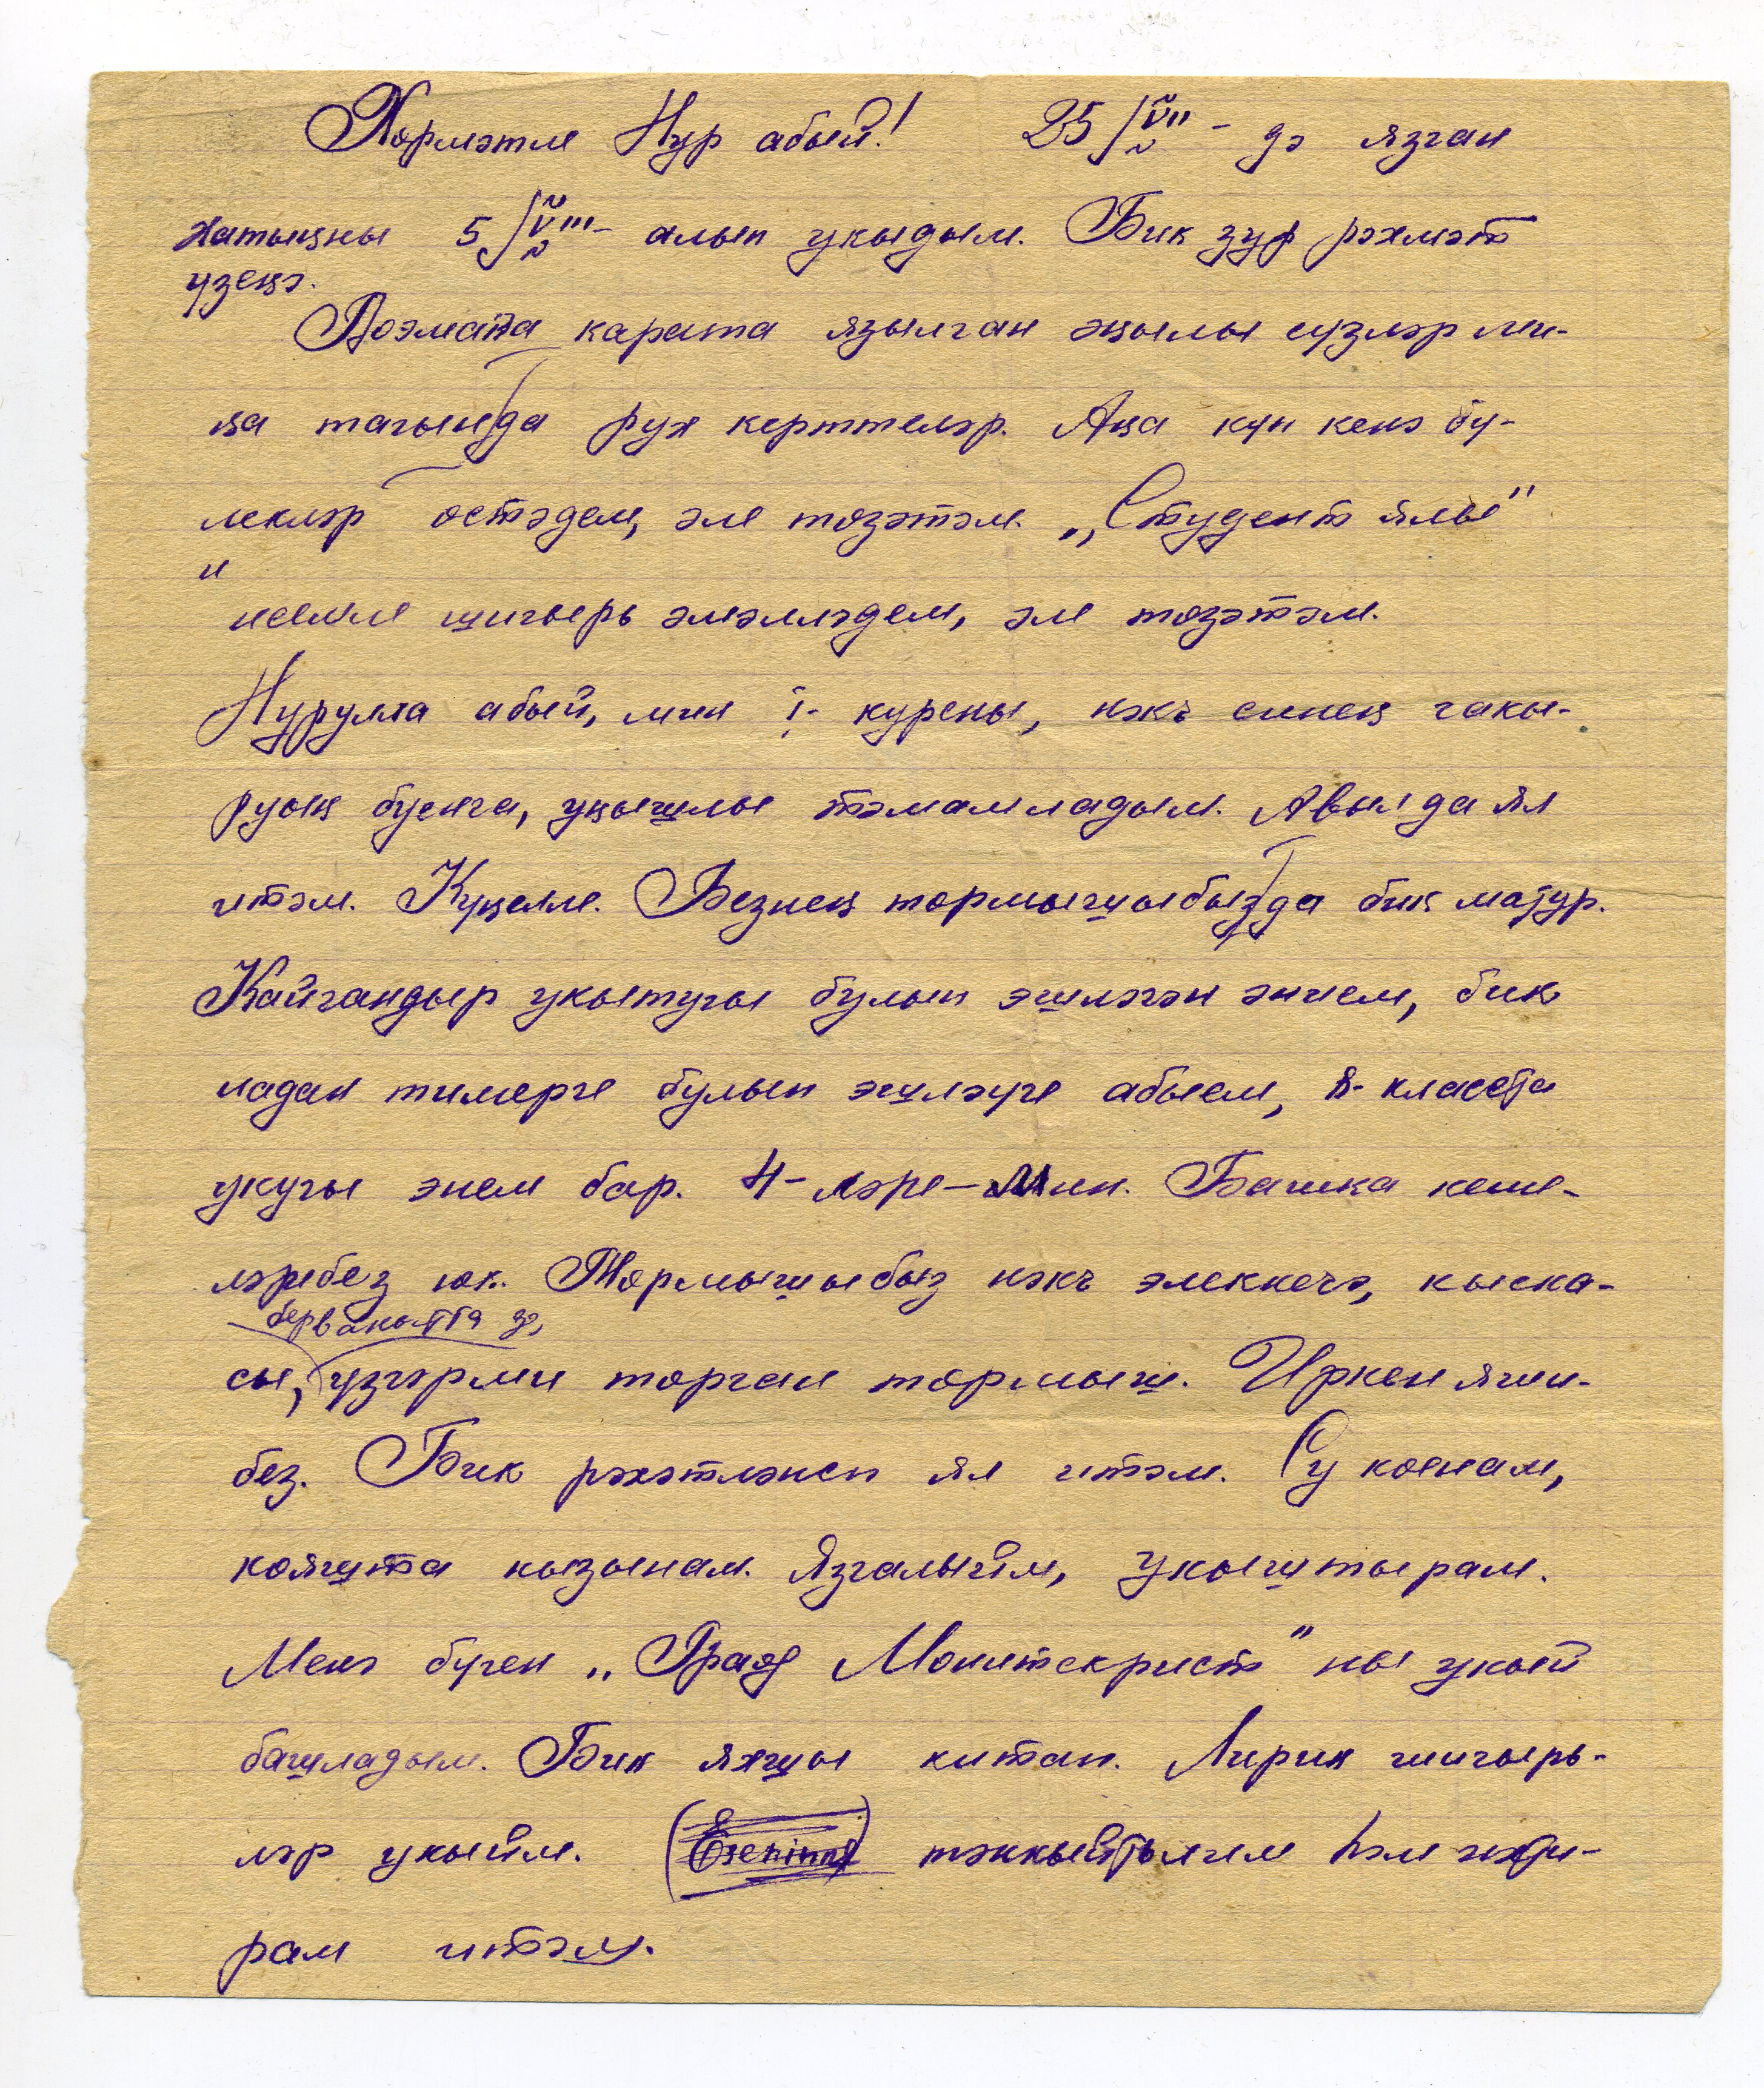 Хөрмәтле Нур абый! 25/VII - дә язган
хатыңны 5/VIII - алып укыдым. Бик зур рәхмәт
үзеңә.
Поэмага карата язылган җылы сүзләр ми-
ңа тагын да рух керттеләр. Аңа күп кенә бү-
лекләр өстәдем, әле төзәтәм. „Студент ялы"
исемле шигырь әмәлләдем, әле төзәтәм.
Нурулла абый, мин I- курсны, нәкъ синең чакы-
руың буенча, уңышлы тәмамладым. Авылда ял
итәм. Күңелле. Безнең тормышыбыз да бик матур.
Кайчандыр укытучы булып эшләгән әнием, бик
надан тимерче булып эшләүче абыем, 8- класста
укучы энем бар. 4-ләре - мин. Башка кеше-
ләребез юк. Тормышыбыз нәкъ элеккечә, кыска-
бервакытта да,
сы, үзгәрми торган тормыш. Иркен яши-
без. Бик рәхәтләнеп ял итәм. Су коенам,
кояшта кызынам. Язгалыйм, укыштырам.
Менә бүген „Граф Монтекрист" ны укый
башладым. Бик яхшы китап. Лирик шигырь-
ләр укыйм. (Eseninны) тәнкыйтьлим һәм ихти-
рам итәм.